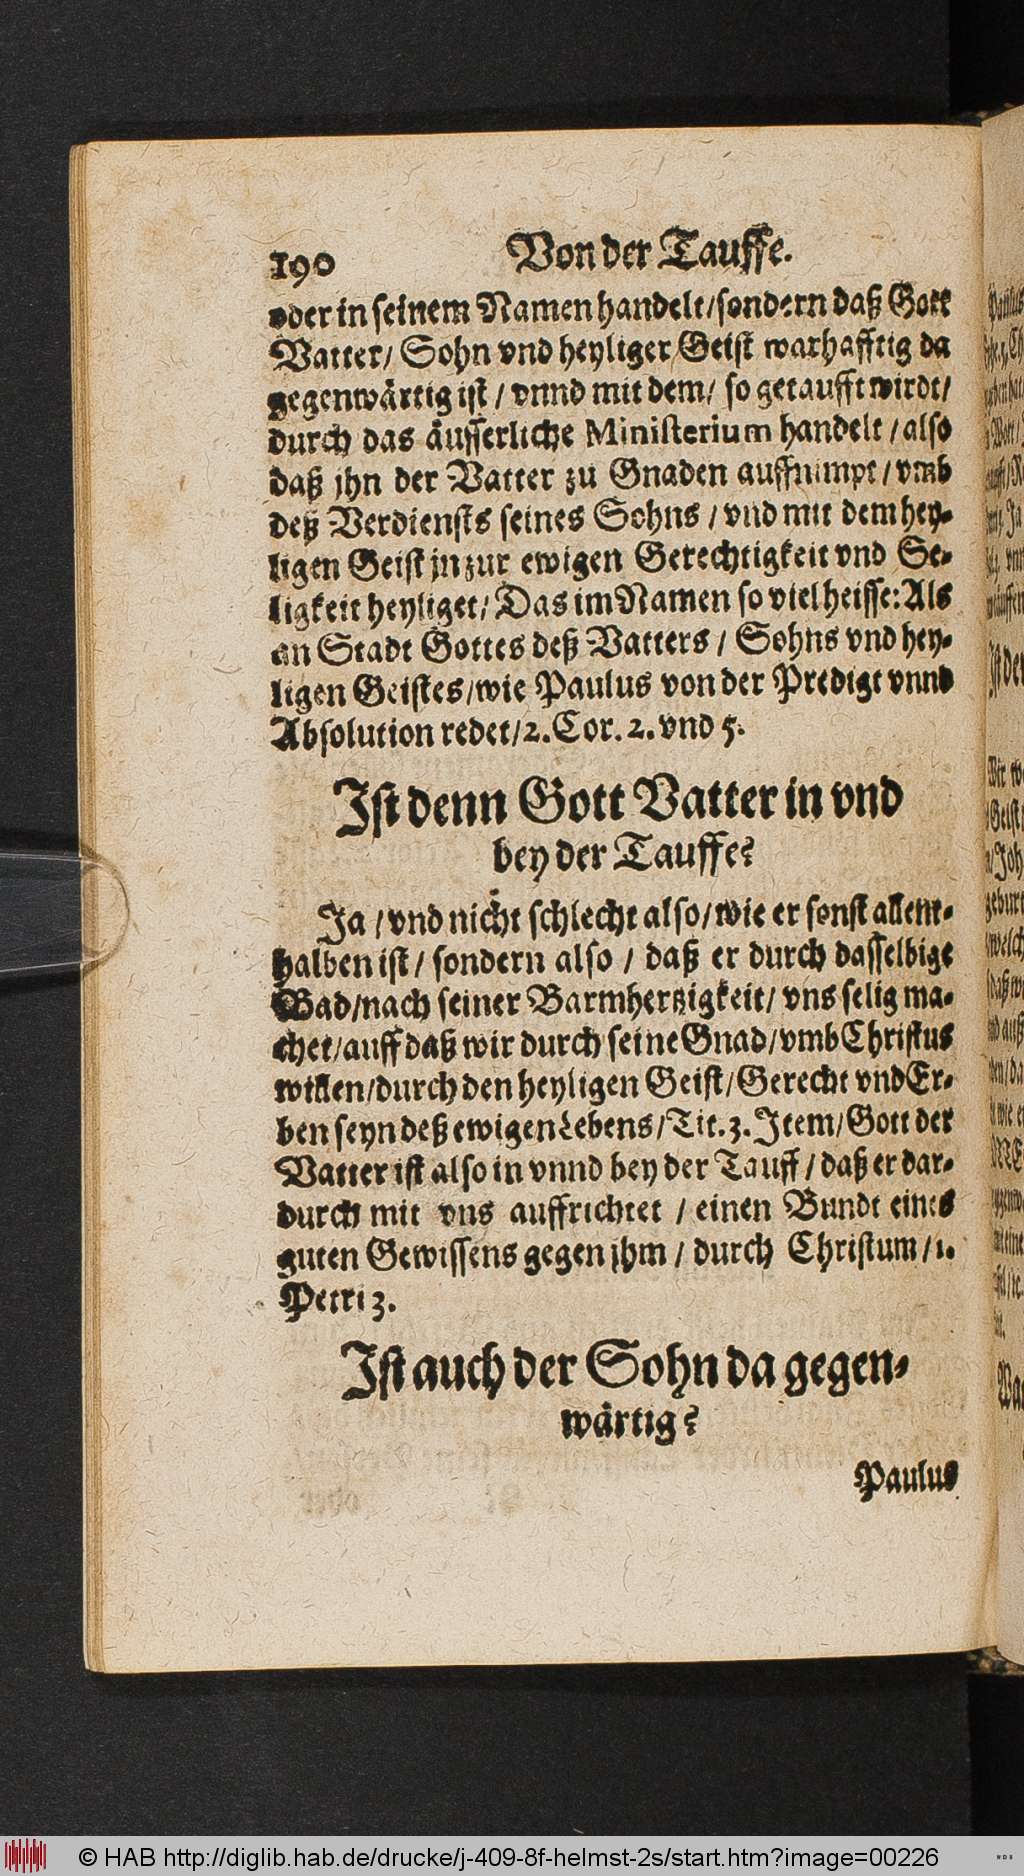 190 Von der Tauffe.
oder in seinem Namen handelt/sondern daß Gott
Vatter/ Sohn vnd heyliger Geist warhafftig da
gegenwärtig ist / vnnd mit dem/ so getaufft wirdt/
durch das äusserliche Ministerium handelt / also
daß jhn der Vatter zu Gnaden auffnimpt / vmb
deß Verdiensts seines Sohns / vnd mit dem hey-
ligen Geist jn zur ewigen Gerechtigkeit vnd Se-
ligkeit heyliget/ Das im Namen so viel heisse: Als
an Stadt Gottes deß Vatters / Sohns vnd hey-
ligen Geistes/wie Paulus von der Predigt vnnd
Absolution redet/2. Cor. 2. vnd 5.
Ist denn Gott Vatter in vnd
bey der Tauffe?
Ja / vnd nicht schlecht also/wie er sonst allent-
halben ist/ sondern also / daß er durch dasselbige
Bad/nach seiner Barmhertzigkeit/ vns selig ma-
chet/auff daß wir durch seine Gnad/vmb Christus
willen/durch den heyligen Geist/Gerecht vnd Er-
ben seyn deß ewigen Lebens/Tit. 3. Item/Gott der
Vatter ist also in vnnd bey der Tauff / daß er dar-
durch mit vns auffrichtet / einen Bundt eines
guten Gewissens gegen jhm / durch Christum/1.
Petri 3.
Ist auch der Sohn da gegen-
wärtig?
Paulus
© HAB http://diglib.hab.de/drucke/j-409-8f-helmst-2s/start.htm?image=00226